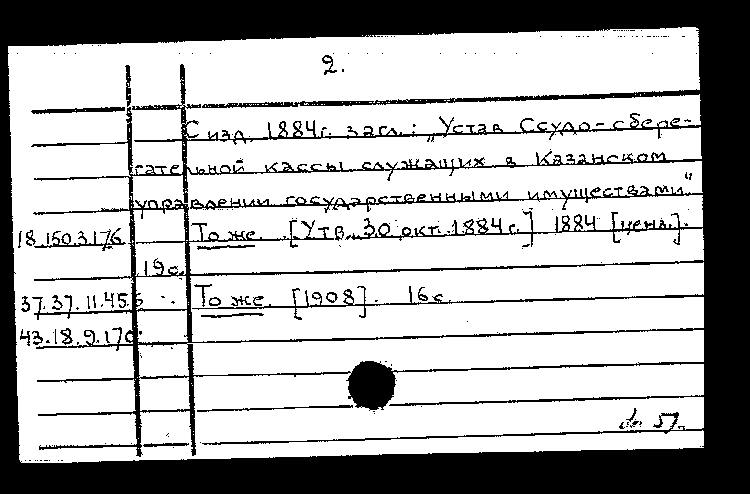 2.
С изд. 1884г. загл.: „Устав Ссудо-сбере-
гательной кассы служащих в Казанском
управлении государственными имуществами"
18.150.3.176 То же. [Утв. 30 окт. 1884 г.] 1884 [ценз.].
19с.
37.37.11.455 То же. [1908]. 16с
43.18.9.170